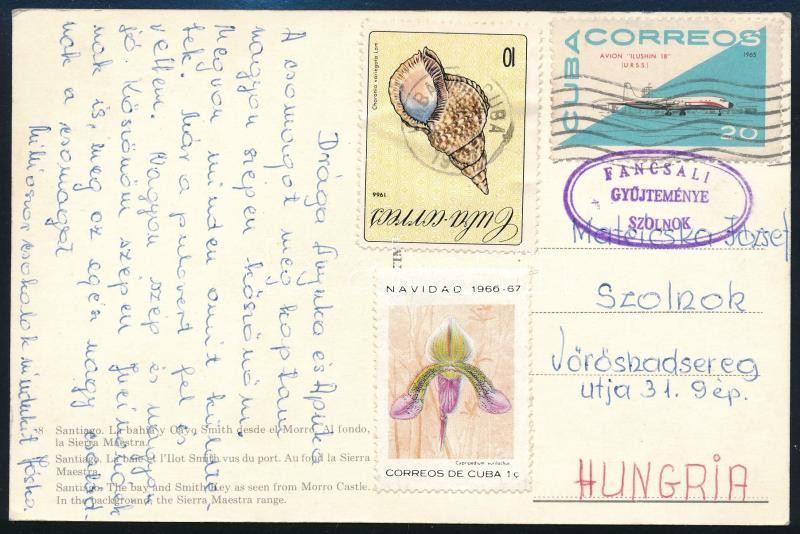 Drága Anyuka és Apuka
A csomagot megkaptam
nagyon szépen köszönöm.
Megvan minden amit küldte-
tek. Már a pulovert fel is
vettem. Nagyon szép és nagyon
jó. Köszönöm szépen
nak is, meg az egész nagy család-
nak a csomagot.
Milliószor csókolok mindenkit Jóska.
8 Santiago. La bahía y Cayo Smith desde el Morro. Al fondo,
la Sierra Maestra.
Santiago. La baie et l'Ilot Smith vus du port. Au fond la Sierra
Maestra.
Santiago. The bay and Smith Key as seen from Morro Castle.
In the background, the Sierra Maestra range.
Charonia variegata Lam
10
1966
Cuba·correos
CUBA
CORREOS
1965
AVION "ILUSHIN 18"
(U.R.S.S.)
20
NAVIDAD 1966-67
Cypripedium eurilochus
CORREOS DE CUBA 1¢
FANCSALI
GYŰJTEMÉNYE
SZOLNOK
Matelcska József
Szolnok
Vöröshadsereg
utja 31. 9ép.
HUNGRIA